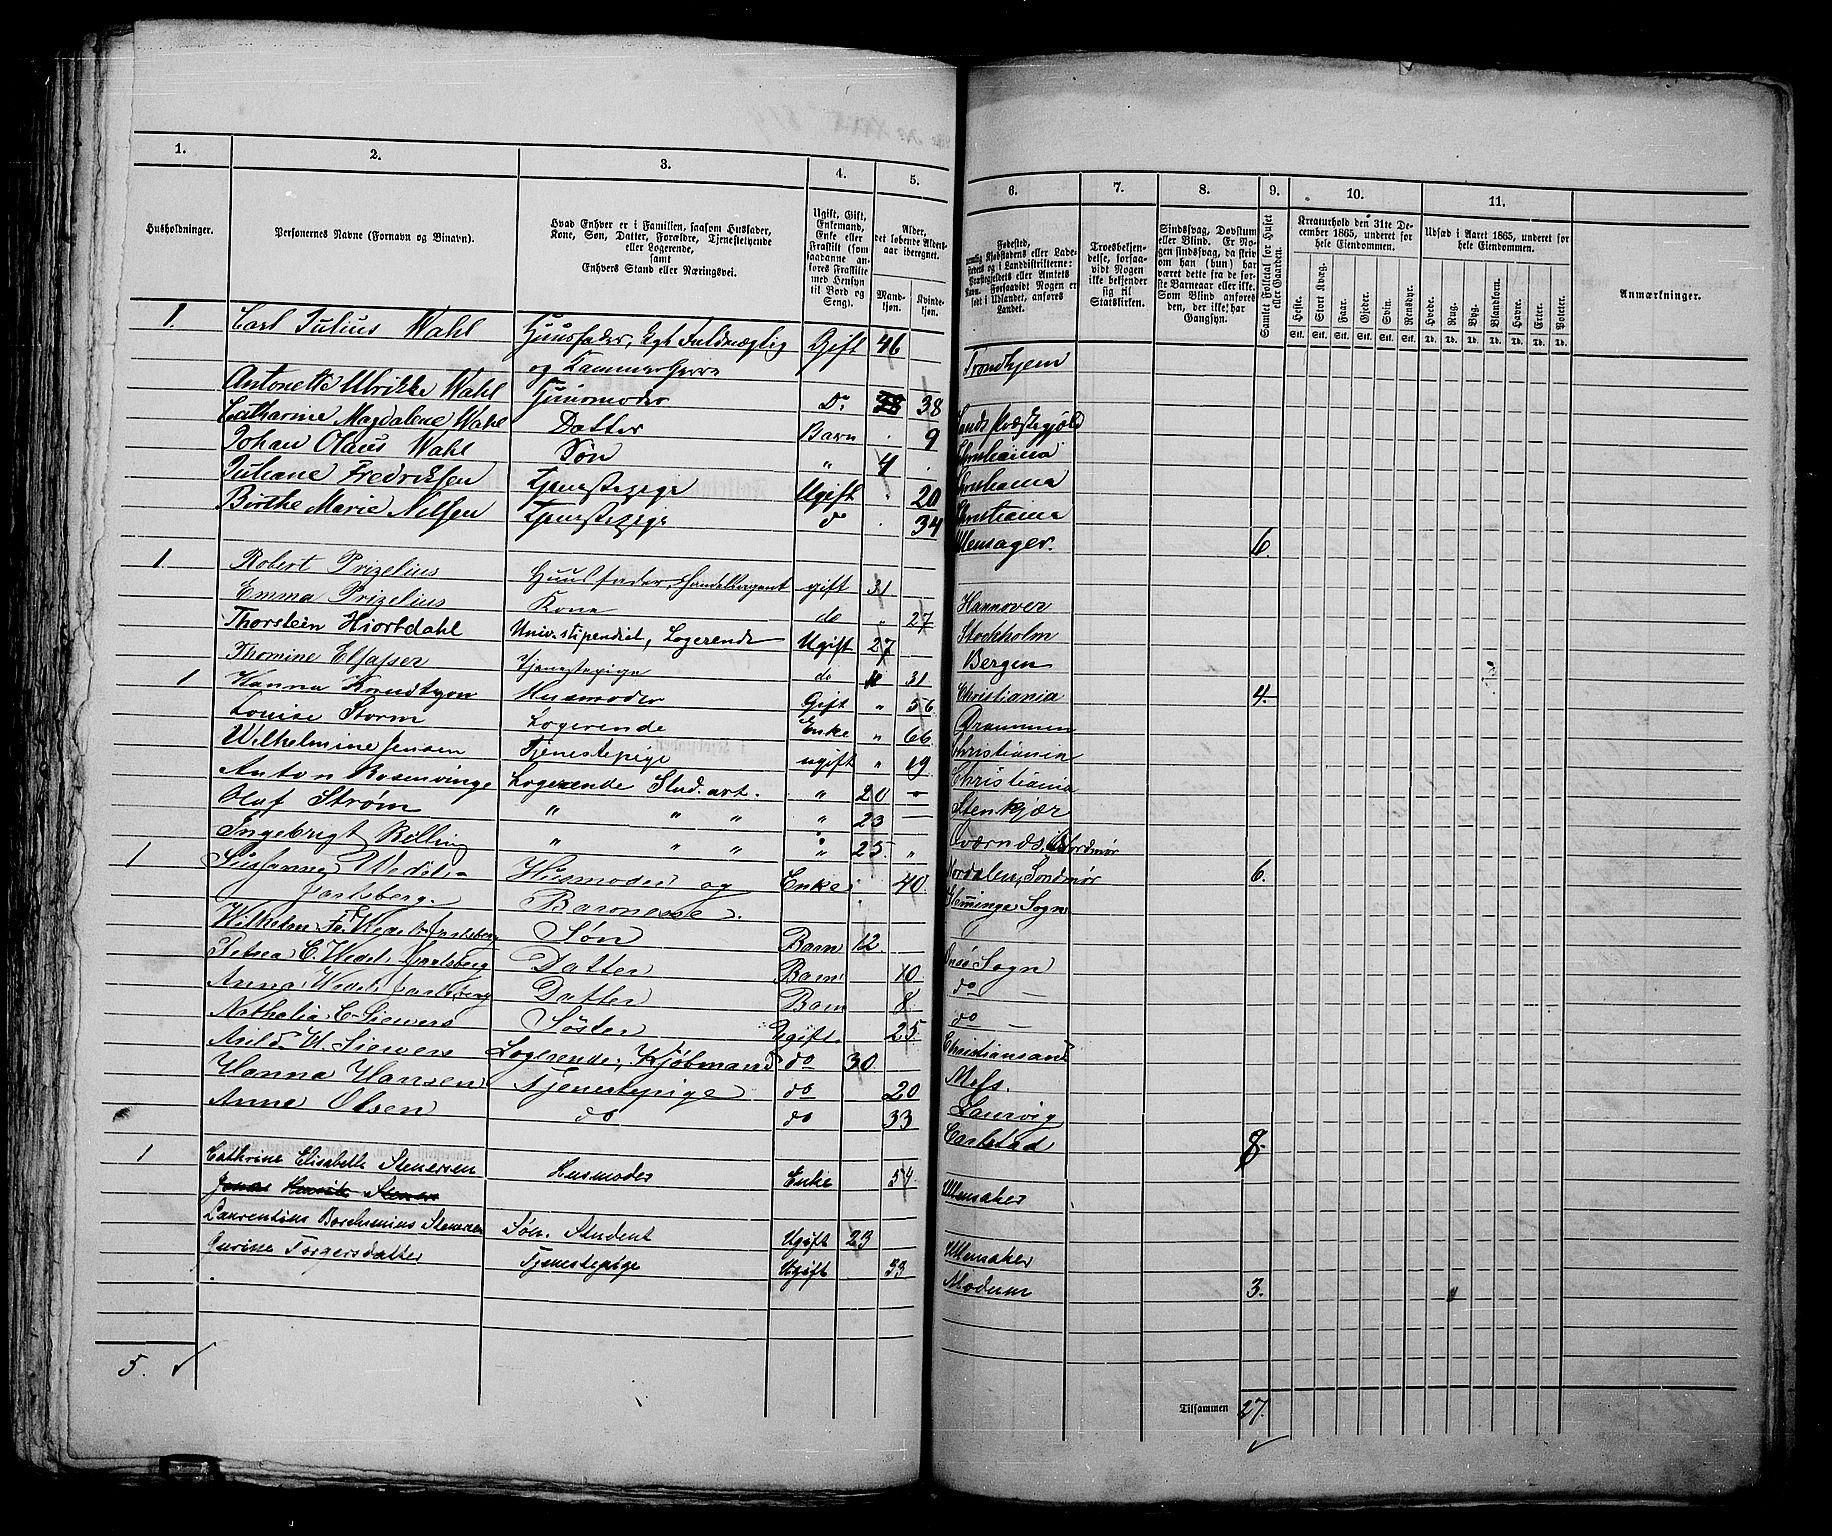 1.
2.
3.
4.
5.
6.
7.
8.
9.
10.
11.
Husholdninger.
Personernes Navne (Fornavn og Binavn).
Hvad Enhver er i Familien, saasom Husfader,
Kone, Søn, Datter, Forældre, Tjenestetyende
eller Logerende,
samt
Enhvers Stand eller Næringsvei.
Ugift, Gift,
Enkemand,
Enke eller
Fraskilt (som
saadanne an-
føres Fraskilte
med Hensyn
til Bord og
Seng).
Alder,
det løbende Alders-
aar iberegnet.
Mand-
kjøn.
Kvinde-
kjøn.
Fødested,
nemlig Kjøbstadens eller Lade-
stedets og i Landdistrikterne:
Præstegjeldets eller Amtets
Navn. Forsaavidt Nogen er
født i Udlandet, anføres
Landet.
Troesbekjen-
delse, forsaa-
vidt Nogen
ikke bekjender
sig til
Statskirken.
Sindssvag, Døvstum
eller Blind. Er No-
gen sindssvag, da skriv
om han (hun) har
været dette fra de før-
ste Barneaar eller ikke.
Som Blind anføres
den, der ikke har
Gangsyn.
Samlet Folketal for Huset
eller Gaarden.
Kreaturhold den 31te De-
cember 1865, underet for
hele Eiendommen.
Heste. Stort Kvæg. Faar. Gjeder. Svin. Rensdyr.
Stk. Stk. Stk. Stk. Stk. Stk.
Udsæd i Aaret 1865, underet for
hele Eiendommen.
Hvede. Rug. Byg. Blandkorn. Havre. Erter. Poteter.
Td. Td. Td. Td. Td. Td. Td.
Anmærkninger.
1. Carl Julius Wahl Huusfader, Kgl Fuldmægtig Gift 46
og Kammerherre Trondhjem
Antonette Ulrikke Wahl Huusmoder Do 38 38
Catharine Magdalene Wahl Datter Barn 9 Christiania
Johan Olaus Wahl Søn " 4 Christiania
Juliane Fredriksen Tjenestepige Ugift 20 Christiania
Birthe Marie Nilsen Tjenestepige do 34 Ullensager. 6.
1. Robert Prizelius Huusfader, Handelsagent gift 31 Hannover
Emma Prizelius Kone do " 27 Stockholm
Thorstein Hiortdahl Univ. stipendiet, Logerende Ugift 27 Bergen
Thomine Elsasser Tjenestepige do 31 Christiania 4.
1 Hanna Knudtzon Husmoder Gift " 56 Drammen
Louise Storm Logerende Enke " 66 Christiania
Wilhelmine Jensen Tjenestepige ugift " 19 Christiania
Anton Rosenvinge Logerende Stud. art. " 20 Stenkjær
Oluf Strøm " " " " 23 — Nordmør
Ingebrigt Billing " " " " 25 " Nordalen, Søndmør 6.
1 Susanne Wedel- Husmoder og Enke 40
Jarlsberg. Baronesse. Sogn
Wilhelm Fr. Wedel Jarlsberg Søn Barn 12 Sogn
Petrea C. Wedel Jarlsberg Datter Barn 10 do —
Anna Wedel Jarlsberg Datter Barn 8 do —
Nathalia C. Siewers Søster Ugift 25 Christiansand
W. Siewers Logerende, Kjøbmand do 30 Moss.
Hanna Hansen Tjenestepige do 20 Laurvig
Anne Olsen do do 33 Carlstad 8.
1 Cathrine Elisabeth Stenersen Husmoder Enke 54 Ullensaker
Jonas Henrik Stener
Laurentius Borchsenius Stenersen Søn. Student Ugift 23 Ullensaker
Gurine Torgersdatter Tjenestepige Ugift 33 Modum 3.
5.
Tilsammen 27.